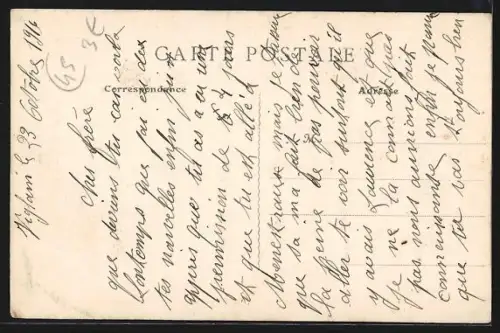 CARTE POSTALE
Correspondance
Adresse
45
3€
le 23 Octobre 191
Cher frère
que deviens tu car voila
longtemps que j'ai eu des
tes nouvelles enfin j'ai
appris que tu as a eu une
permission de 7 jours
et que tu est allé a
mais je
que sa m'a fait bien de
la peine de ne pas pouvoir
aller te voir surtout qu'il
y avais Laurence et que
je ne la connait pas
pas nous aurions fait
connaissance enfin je pense
que tu vas toujours bien